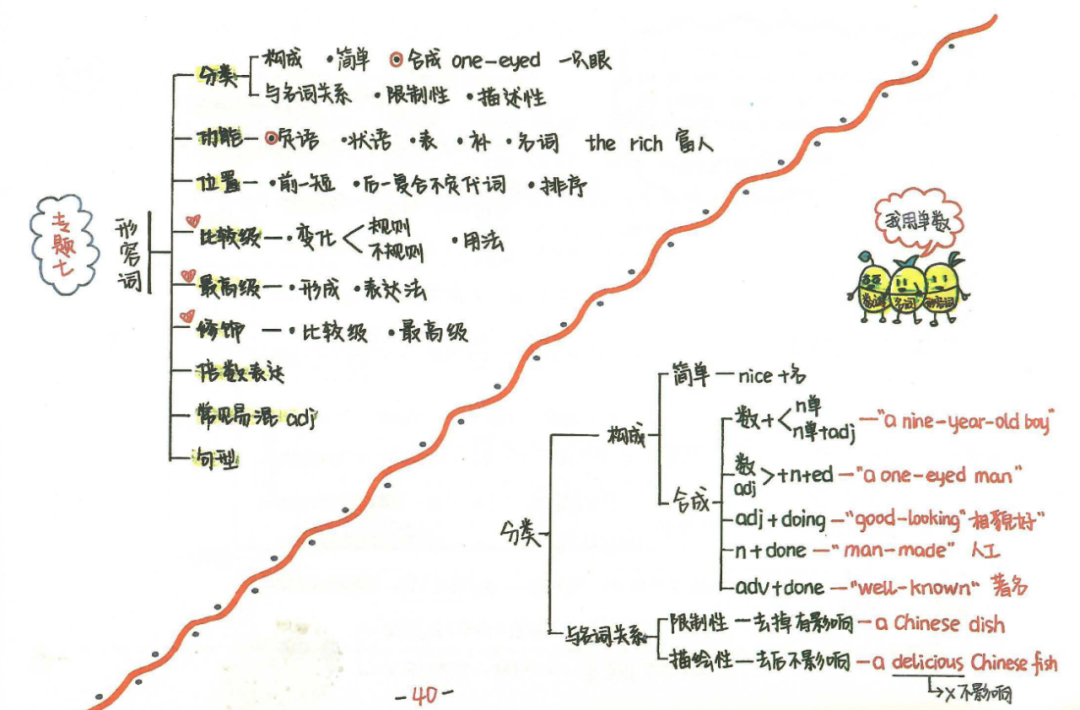 专题七
形容词
分类
构成 ·简单 ⊙合成 one-eyed 一只眼
与名词关系 ·限制性 ·描述性
功能 — ⊙定语 ·状语 ·表 ·补 ·名词 the rich 富人
位置 — ·前—短 ·后—复合不定代词 ·排序
比较级 — ·变化 < 规则
不规则
·用法
最高级 — ·形成 ·表达法
修饰 — ·比较级 ·最高级
倍数表达
常见易混 adj
句型
我用单数
数词
名词
形容词
分类
构成
简单 — nice + 名
合成
数 + < n单
n单+adj
— "a nine-year-old boy"
数
adj
> +n+ed — "a one-eyed man"
adj + doing — "good-looking" 相貌好"
n + done — "man-made" 人工
adv + done — "well-known" 著名
与名词关系
限制性 — 去掉有影响 — a Chinese dish
描绘性 — 去后不影响 — a delicious Chinese fish
→ x 不影响
- 40 -